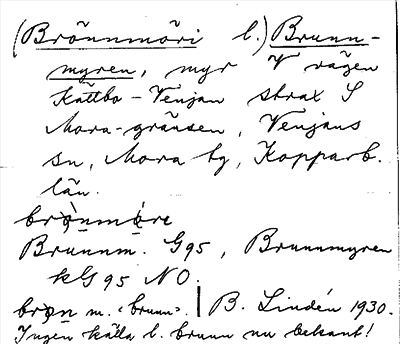 (Brönnmöri l.) Brunn-
myren, myr V vägen
Kättbo - Venjan strax S
Mora-gränsen, Venjans
sn, Mora tg, Kopparb.
län.
Brunnm. G95, Brunnmyren
kG 95 NO.
m. "brunn". | B. Lindén 1930.
Ingen källa l. brunn nu bekant!